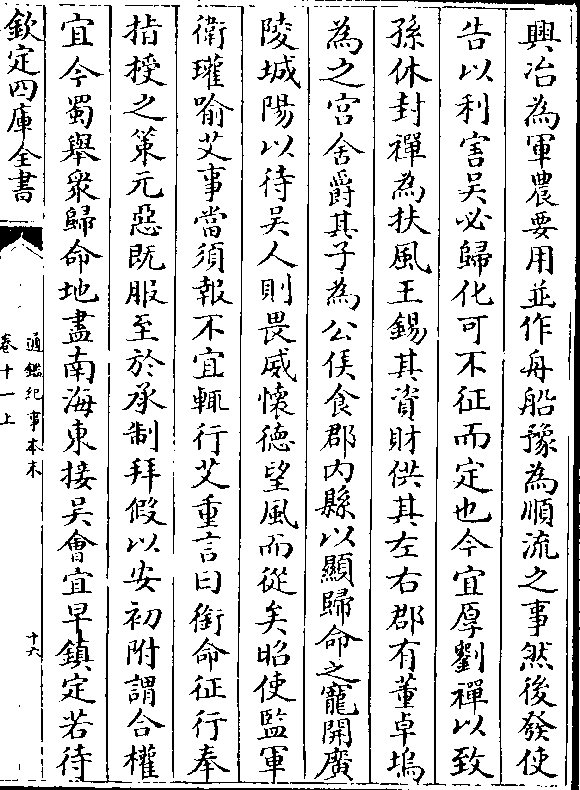 興冶為軍農要用並作舟船豫為順流之事然後發使
告以利害吳必歸化可不征而定也今宜厚劉禪以致
孫休封禪為扶風王錫其資財供其左右郡有董卓塢
為之宮舍爵其子為公侯食郡內縣以顯歸命之寵開廣
陵城陽以待吳人則畏威懷德望風而從矣昭使監軍
衛瓘喻艾事當須報不宜輒行艾重言曰銜命征行奉
指授之策元惡既服至於承制拜假以安初附謂合權
宜今蜀舉眾歸命地盡南海東接吳會宜早鎮定若待
欽定四庫全書
通鑑紀事本末
卷十一上
十六